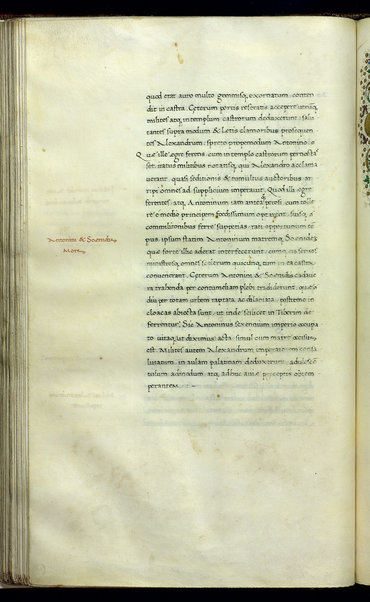 quod erat auro multo gemmisq; exornatum conten
dit in castra. Ceterum portis reseratis accepere utrūq;
milites atq; in templum castrorum deduxerunt: salu
tantes supra modum & letis clamoribus prosequen
tes Alexandrum: spreto propemodum Antonino:
Quę ille egre ferens: cum in templo castrorum pernocta
set: iratus militibus notansq; qui Alexandro acclama
uerant: quasi seditionis & tumultus auctoribus: ar
ripi omnes ad supplicium imperauit. Quod illi egre
ferentes: atq; Antoninum iam antea perosi: cum tolle
re e medio principem fœdissimum opte
commilitonibus ferre suppetias: rati opportunum te
pus: ipsum statim Antoninum matremq; Soemidem
quę forte illic aderat interfecerunt: cum
ministrosq; omnes scelerum quicūq; tum in ea castra
conuenerant. Ceterum Antonini & Soemidis cadaue
ra trahenda per contumeliam plebi tradiderunt: quę
diu per totam urbem raptata: ac dilaniata: postremo in
cloacas abiecta sunt: ut inde scilicet in Tiberim de
ferrentur. Sic Antoninus sextennium imperio occupa
to: uitaq; ut diximus acta: simul cum matre occisus
est. Milites autem Alexandrum imperatorem consa
lutatum: in aulam palatinam deduxerunt: adulescē
tulum admodum: atq; adhuc auię preceptis obtem
perantem
Antonini & Soemidis
Mors